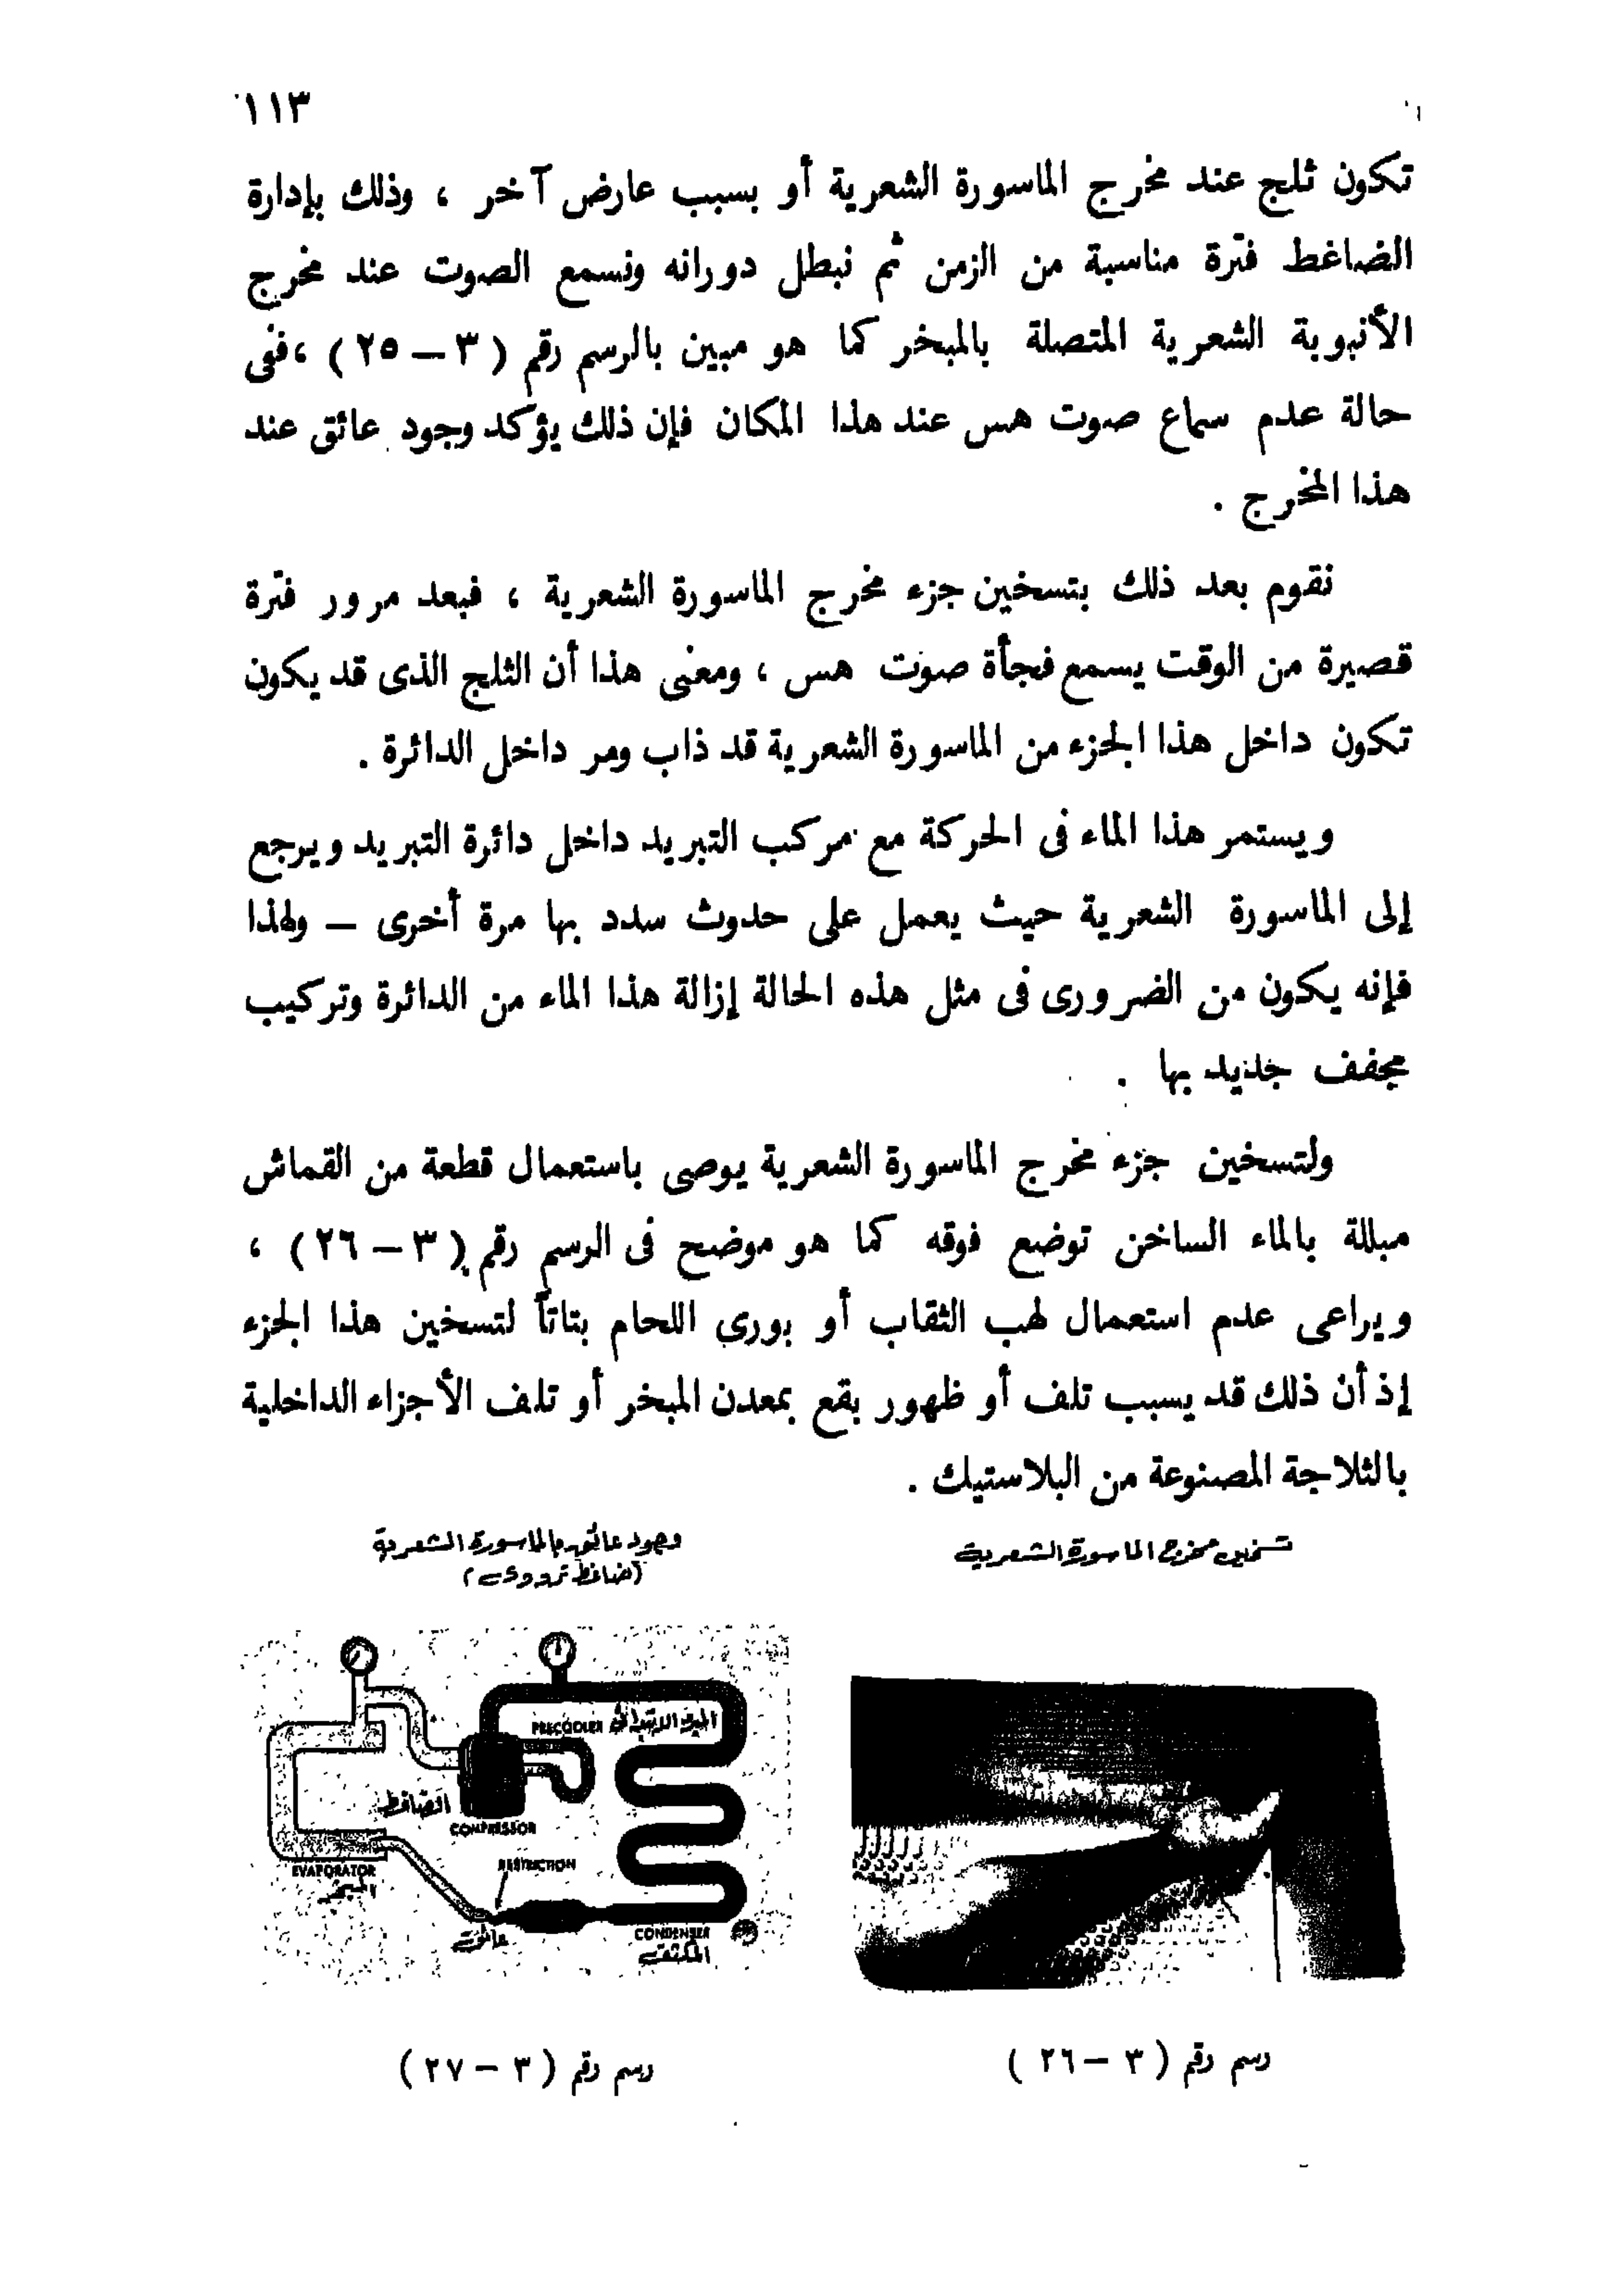 ١١٣
تكون ثلج عند مخرج الماسورة الشعرية أو بسبب عارض آخر ، وذلك بإدارة
الضاغط فترة مناسبة من الزمن ثم نبطل دورانه ونسمع الصوت عند مخرج
الأنبوبة الشعرية المتصلة بالمبخر كما هو مبين بالرسم رقم ( ٣ – ٢٥ ) ، ففى
حالة عدم سماع صوت هس عند هذا المكان فإن ذلك يؤكد وجود عائق عند
هذا المخرج .
نقوم بعد ذلك بتسخين جزء مخرج الماسورة الشعرية ، فبعد مرور فترة
قصيرة من الوقت يسمع فجأة صوت هس ، ومعنى هذا أن الثلج الذى قد يكون
تكون داخل هذا الجزء من الماسورة الشعرية قد ذاب ومر داخل الدائرة .
ويستمر هذا الماء فى الحركة مع مركب التبريد داخل دائرة التبريد ويرجع
إلى الماسورة الشعرية حيث يعمل على حدوث سدد بها مرة أخرى – ولهذا
فإنه يكون من الضرورى فى مثل هذه الحالة إزالة هذا الماء من الدائرة وتركيب
مجفف جديد بها .
ولتسخين جزء مخرج الماسورة الشعرية يوصى باستعمال قطعة من القماش
مبللة بالماء الساخن توضع فوقه كما هو موضح فى الرسم رقم ( ٣ – ٢٦ ) ،
ويراعى عدم استعمال لهب الثقاب أو بورى اللحام بتاتاً لتسخين هذا الجزء
إذ أن ذلك قد يسبب تلف أو ظهور بقع بمعدن المبخر أو تلف الأجزاء الداخلية
بالثلاجة المصنوعة من البلاستيك .
تسخين مخرج الماسورة الشعرية
وجود عائق بالماسورة الشعرية
(ضاغط ترددى)
PRECOOLER المبرد الابتدائى
الضاغط
COMPRESSOR
RESTRICTION
EVAPORATOR
المبخر
عائق
CONDENSER
المكثف
رسم رقم ( ٣ – ٢٦ )
رسم رقم ( ٣ – ٢٧ )